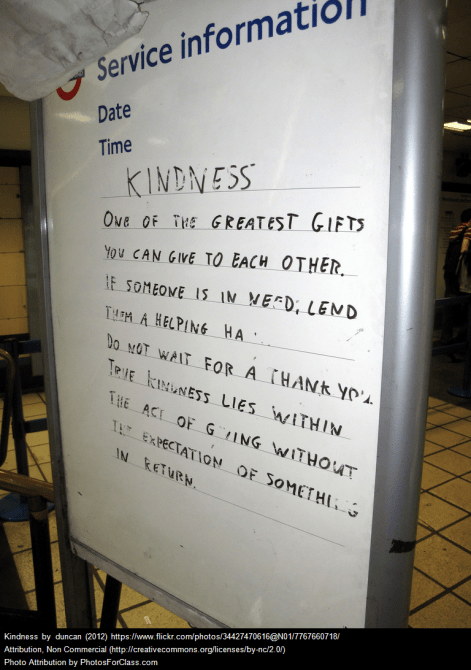 Service information
Date
Time
KINDNESS
ONE OF THE GREATEST GIFTS
YOU CAN GIVE TO EACH OTHER.
IF SOMEONE IS IN NEED, LEND
THEM A HELPING HA
DO NOT WAIT FOR A THANK YOU.
TRUE KINDNESS LIES WITHIN
THE ACT OF GIVING WITHOUT
THE EXPECTATION OF SOMETHING
IN RETURN.
Kindness by duncan (2012) https://www.flickr.com/photos/34427470616@N01/7767660718/
Attribution, Non Commercial (http://creativecommons.org/licenses/by-nc/2.0/)
Photo Attribution by PhotosForClass.com